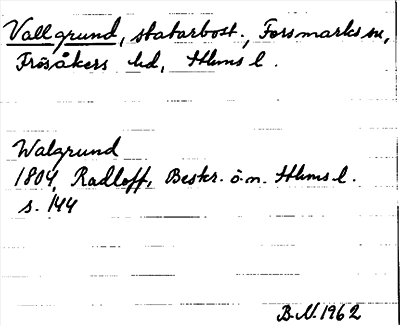 Vallgrund, statarbost., Forsmarks sn,
Frösåkers hd, Sthms l.
Walgrund
1804, Radloff, Beskr. ö.n. Sthms l.
s. 144
B.N. 1962